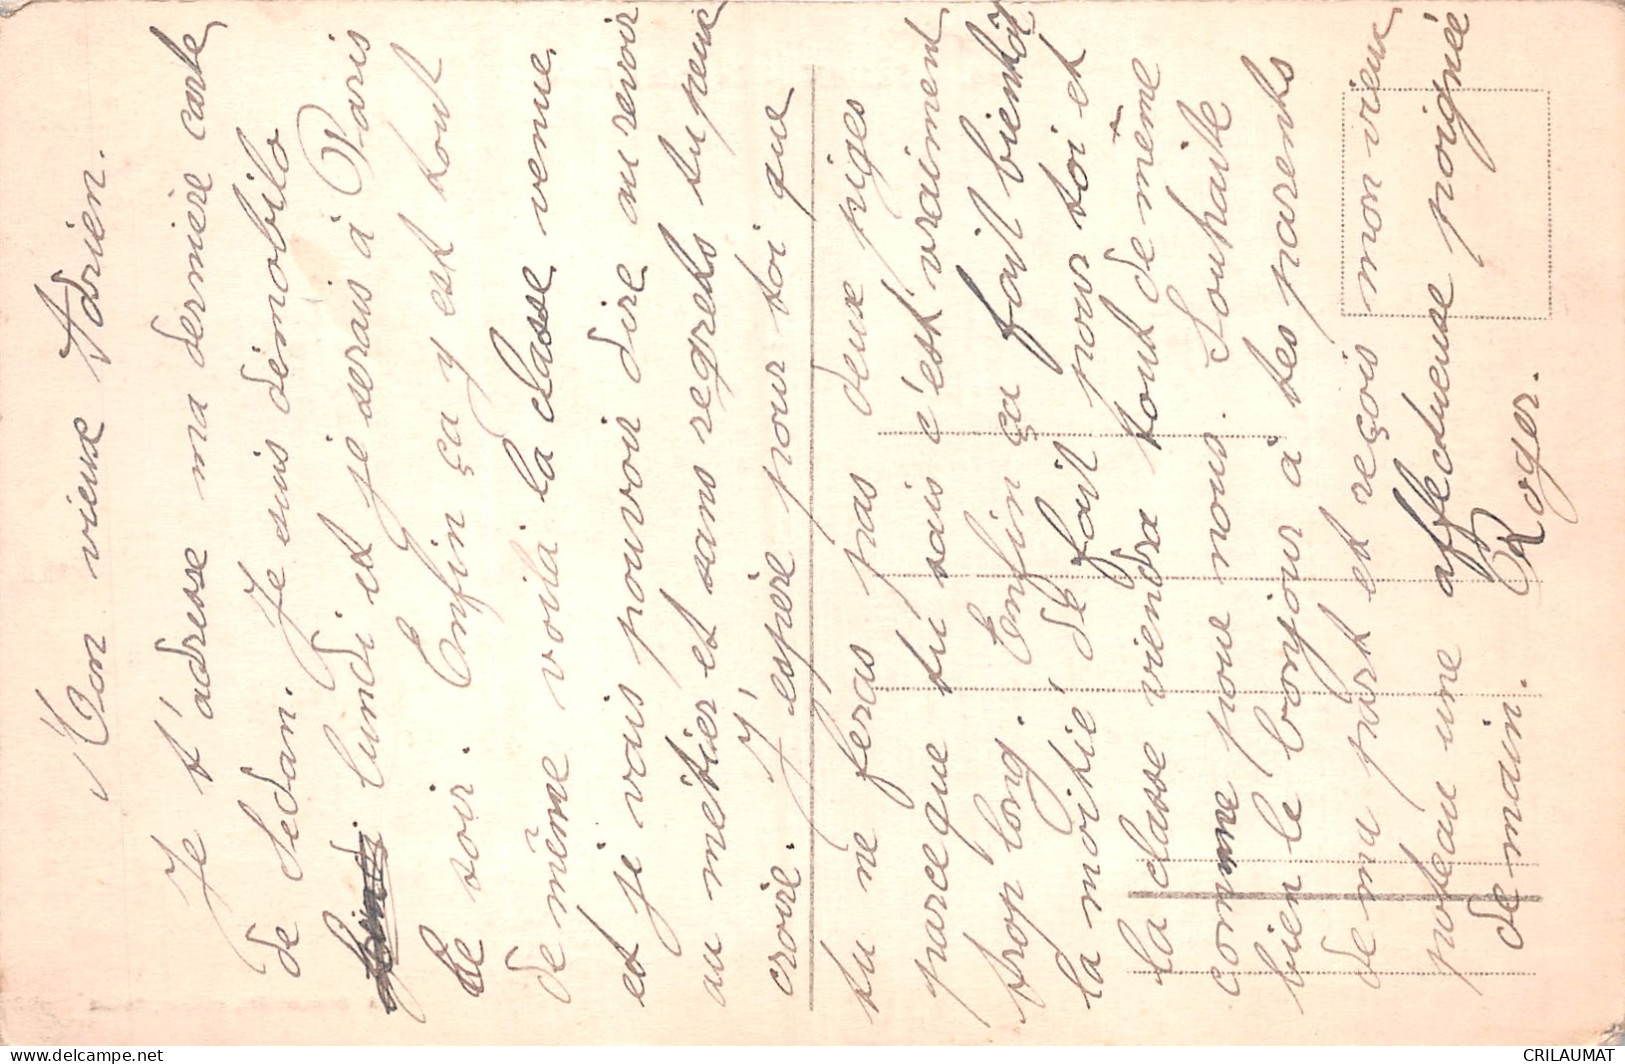 Mon vieux Adrien.
Je t'adresse ma dernière carte
de Sedan. Je suis démobilo
lundi et je serais à Paris
le soir. Enfin ça y est tout
de même voilà la classe venue
et je vais pouvoir dire au revoir
au métier et sans regrets tu peux
croire. J'espère pour toi que
tu ne feras pas deux piges
parce que tu sais c'est vraiment
trop long. Enfin ça fait bientôt
la moitié de fait pour toi et
la classe viendra tout de même
comme pour nous. Souhaite
bien le bonjour à tes parents
de ma part et reçois mon vieux
poteau une affectueuse poignée
de main. Roger.
CRILAUMAT
delcampe.net